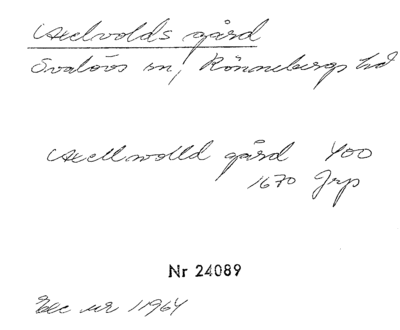 Axelvolds gård
Svalövs sn, Rönnebergs hd
Axellwolld gård 400
1670 Jrp
Nr 24089
Exc nr 1 1964